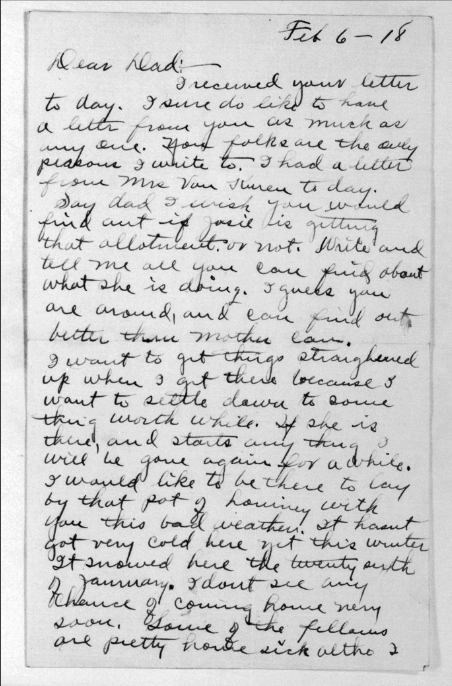 Feb 6-18
Dear Dad:
I received your letter
to day. I sure do like to have
a lettr from you as much as
any one. You folks are the only
persons I write to. I had a letter
from Mrs Van to day.
Say dad I wish you would
find out if Josie is getting
that allotment. or not. Write and
tell me all you can find about
what she is doing. I guess you
are around, and can find out
better than mother can.
I want to get things straighened
up when I get there because I
want to settle down to some
thing worth while. If she is
there, and starts any thing I
will be gone again for a while.
I would like to be there to lay
by that pot of hominey with
you this bad weather. It hasnt
got very cold here yet this winter
It snowed here the twenty sixth
of Januuary. I dont see any
chance of coming home very
soon. Some of the fellows
are pretty home sick altho I